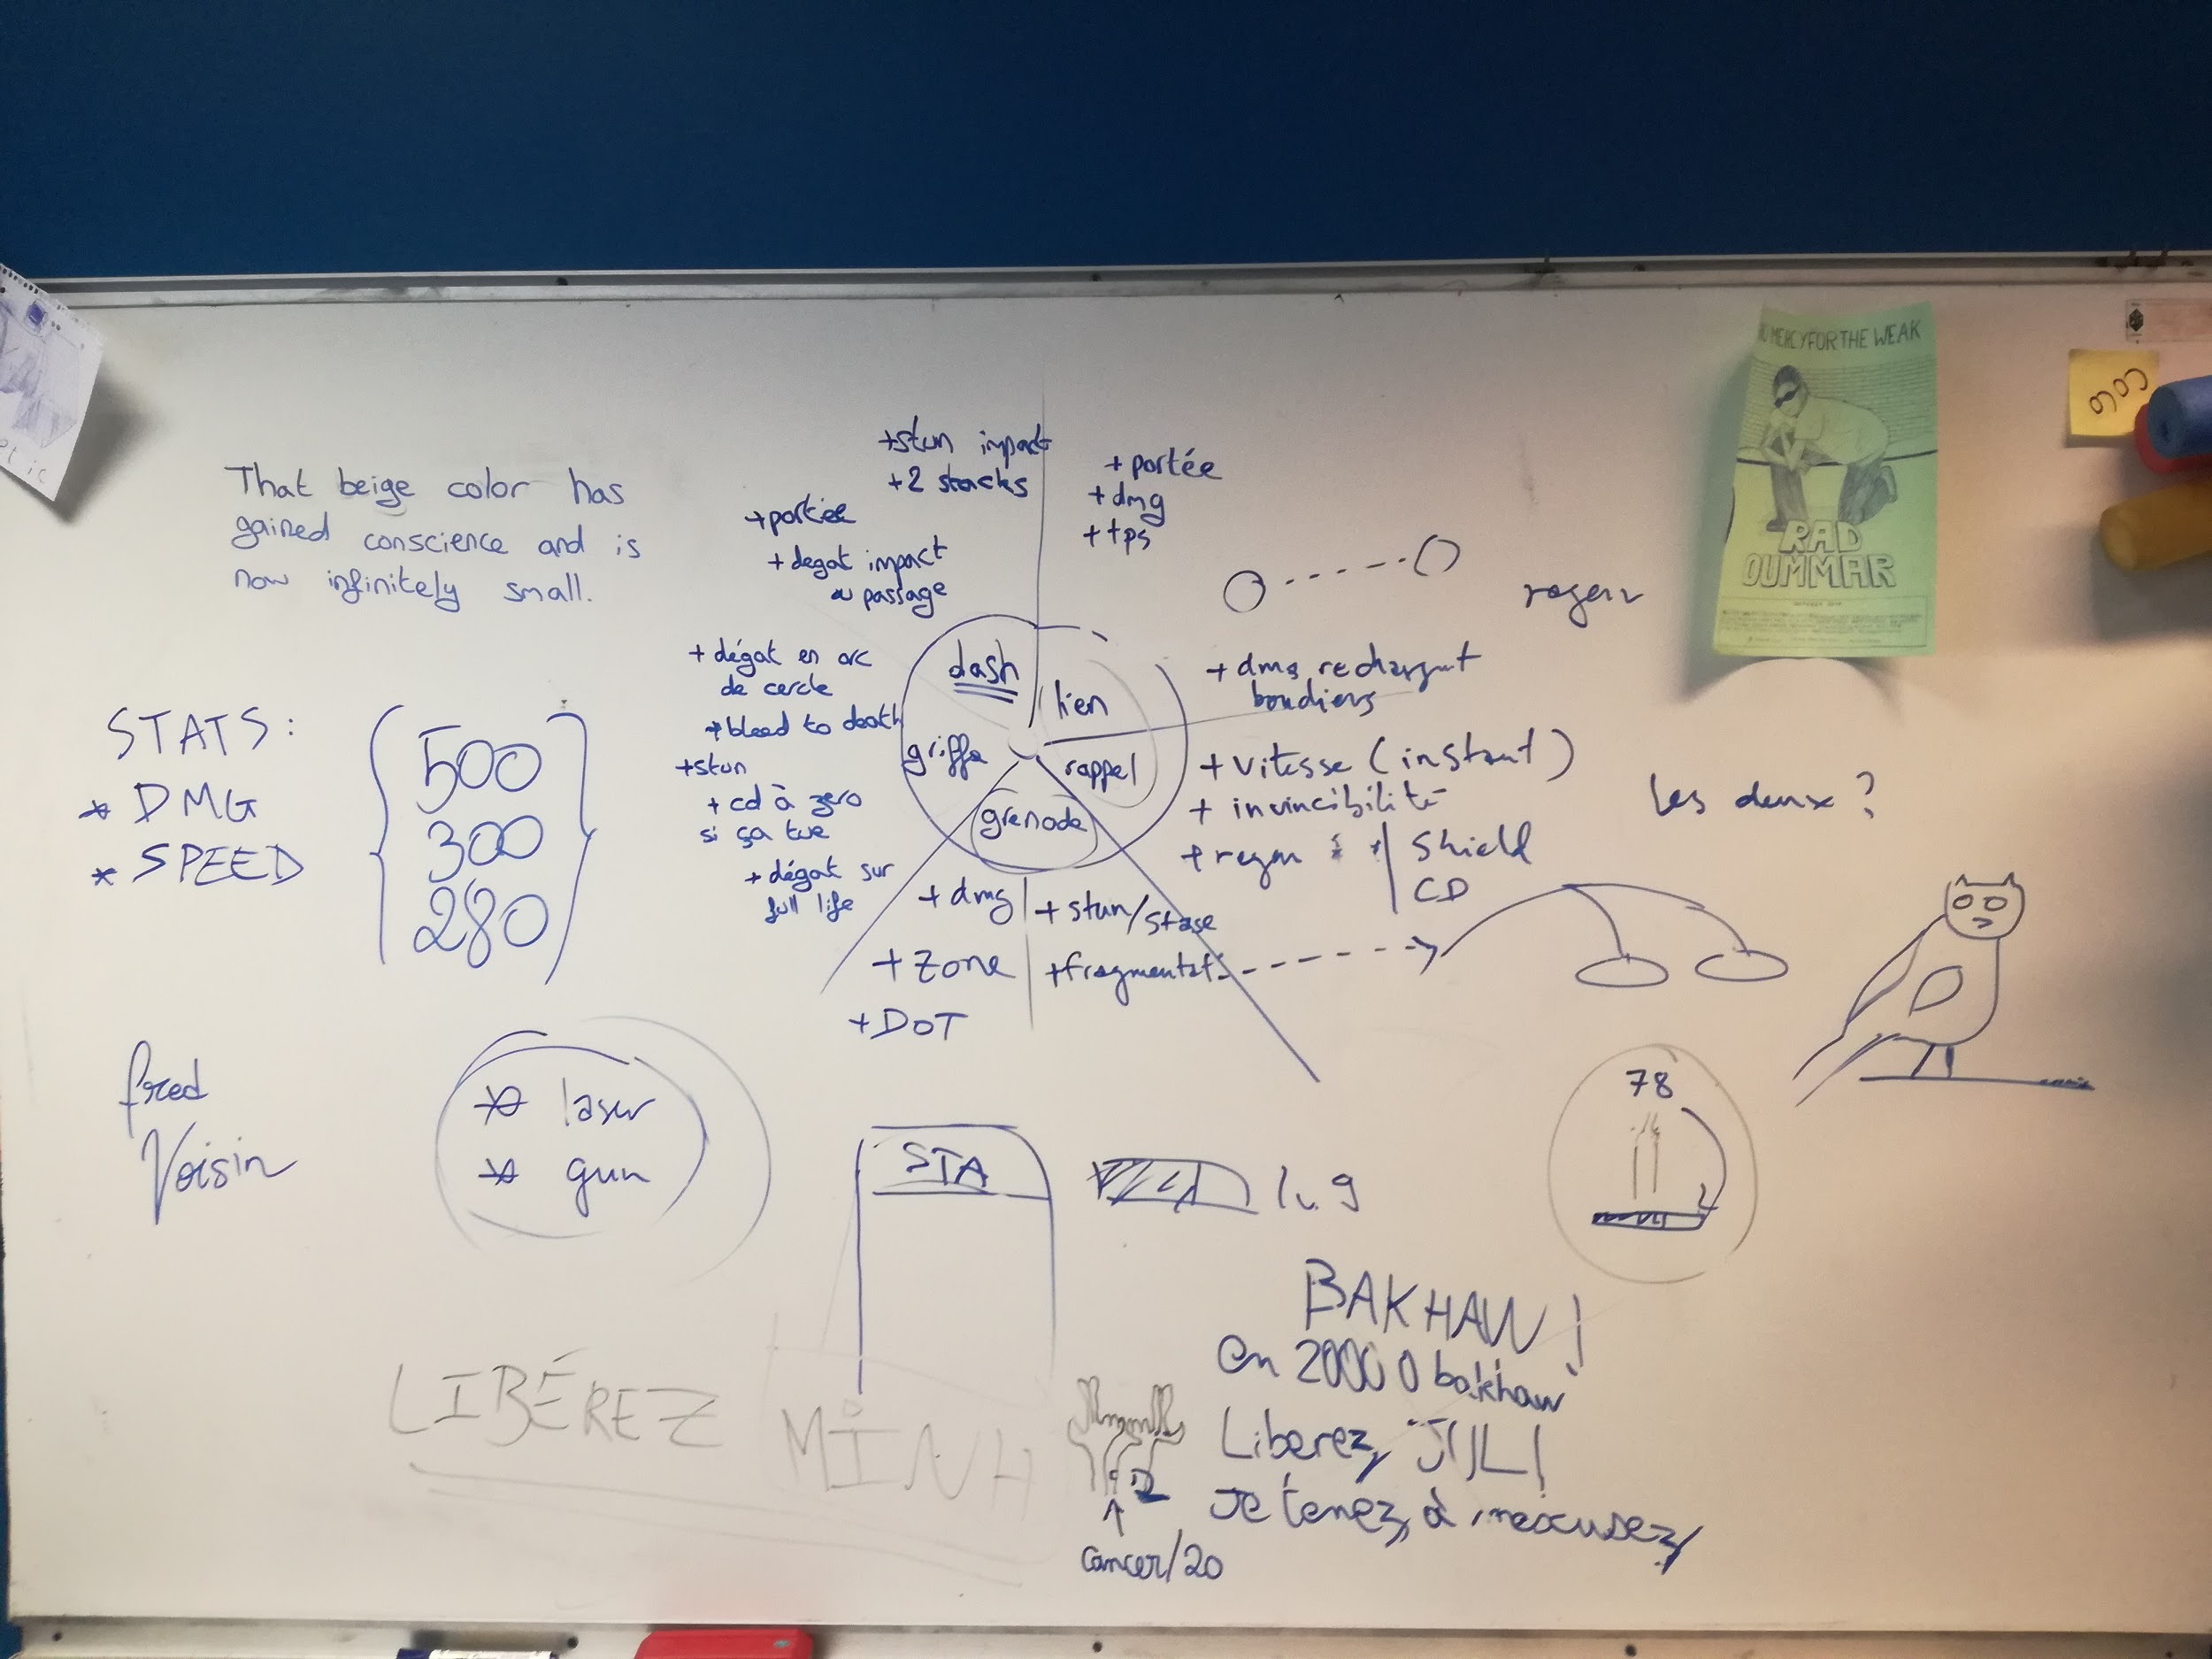 That beige color has
gained conscience and is
now infinitely small.
STATS:
* DMG
* SPEED
500
300
280
fred
Voisin
* laser
* gun
+stun impact
+2 stacks
+portée
+degat impact
au passage
+ dégat en arc
de cercle
+bleed to death
+stun
+ cd à zero
si ça tue
+ dégat sur
full life
dash
lien
griffe
rappel
grenade
+ portée
+ dmg
+ tps
+ dmg rechargent
boucliers
+ vitesse (instant)
+ invincibilité
+ regen
Shield
CD
les deux ?
+ dmg
+ zone
+ DOT
+ stun/stase
+fragmentat°
STA
78
BAKHAW !
en 20000 bakhaw
Liberez JIL!
Je tenez à mexcusez
cancer/20
LIBÉREZ MINH
NO MERCY FOR THE WEAK
RAD
OUMMAR